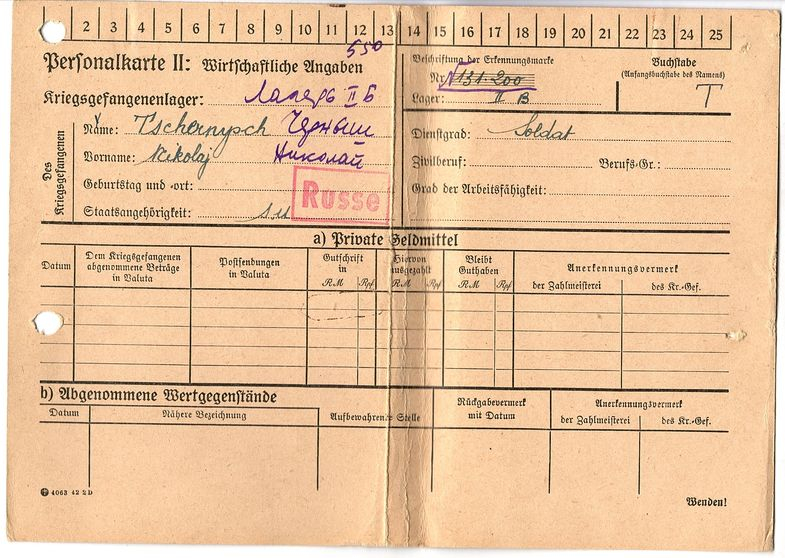 2 3 4 5 6 7 8 9 10 11 12 13 14 15 16 17 18 19 20 21 22 23 24 25
550
Personalkarte II: Wirtschaftliche Angaben
Kriegsgefangenenlager: Лагерь I Б
Des Kriegsgefangenen
Name: Tschernysch Черныш
Vorname: Nikolaj Николай
Geburtstag und -ort:
Staatsangehörigkeit: S.U.
Russe
Beschriftung der Erkennungsmarke
Nr. 131.200
Lager: II B
Buchstabe
(Anfangsbuchstabe des Namens)
T
Dienstgrad: Soldat
Zivilberuf: Berufs-Gr.:
Grad der Arbeitsfähigkeit:
a) Private Geldmittel
Datum
Dem Kriegsgefangenen abgenommene Beträge in Valuta
Postsendungen in Valuta
Gutschrift in
RM Rpf
Hiervon ausgezahlt
RM Rpf
Bleibt Guthaben
RM Rpf
Anerkennungsvermerk
der Zahlmeisterei des Kr.-Gef.
b) Abgenommene Wertgegenstände
Datum
Nähere Bezeichnung
Aufbewahrende Stelle
Rückgabevermerk mit Datum
Anerkennungsvermerk
der Zahlmeisterei des Kr.-Gef.
4063 42 2 D
Wenden!